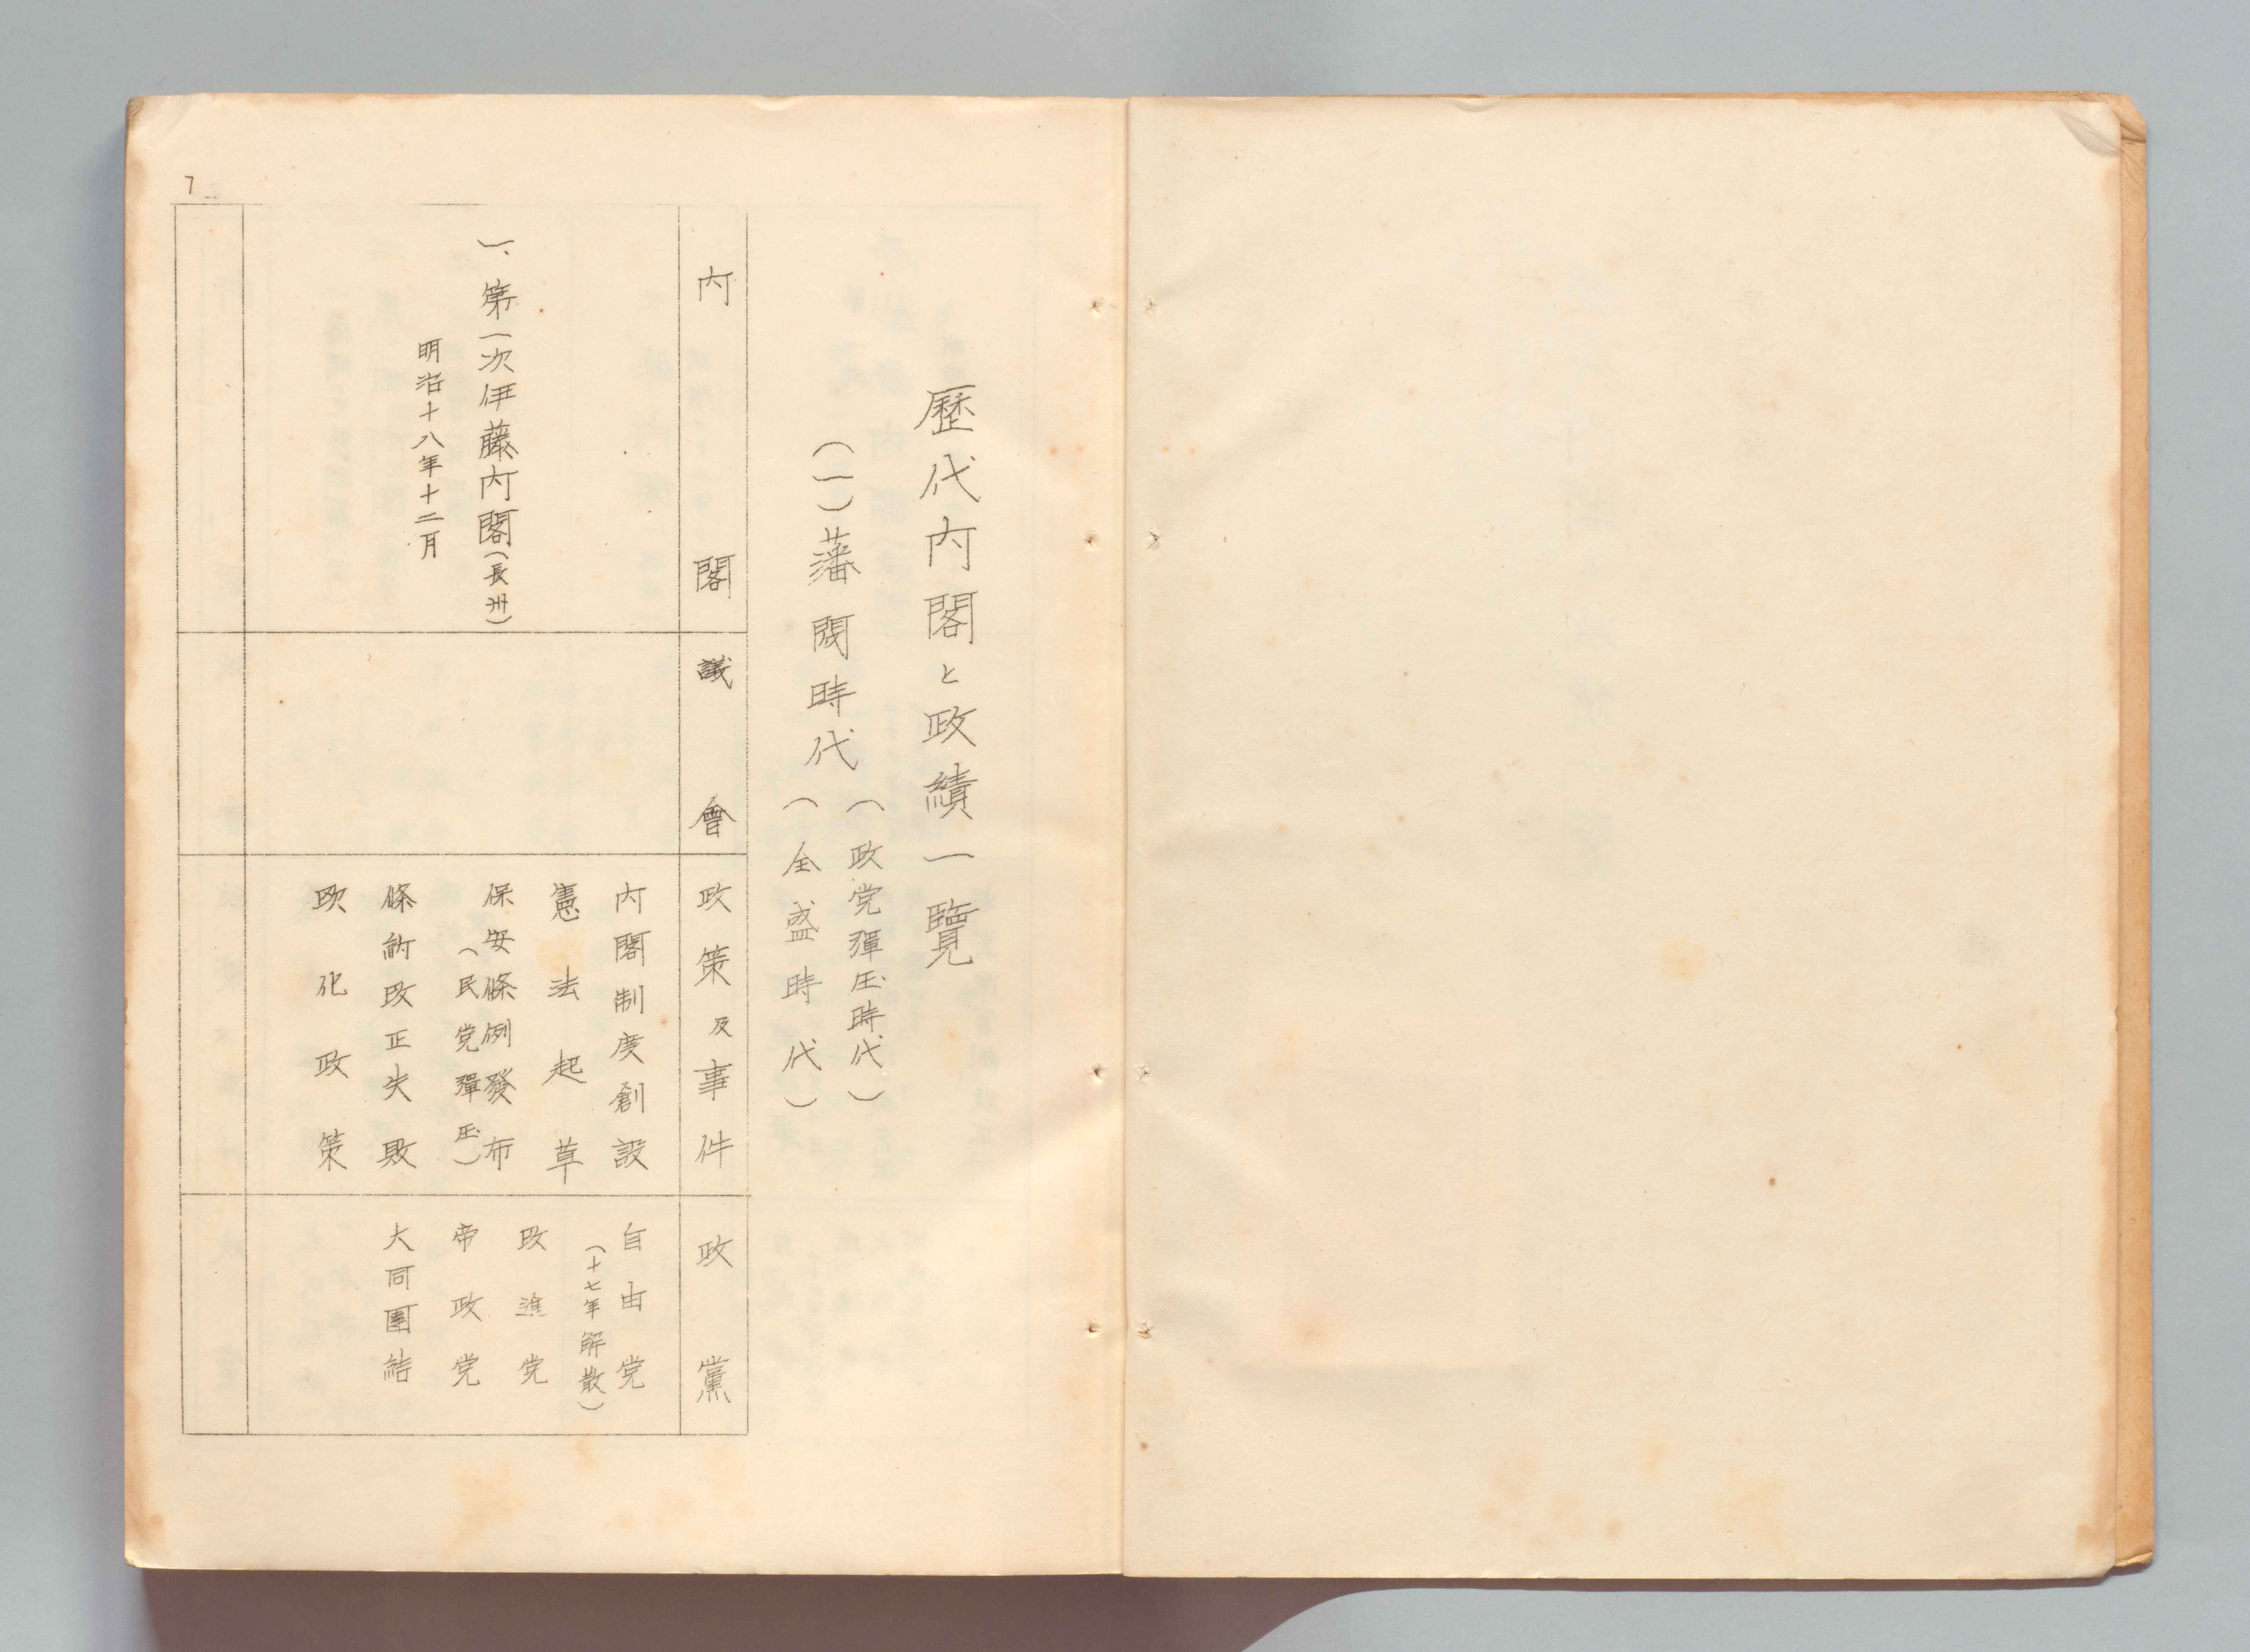 歷代内閣と政績一覽
(一)藩閥時代
(政党彈圧時代)
(全盛時代)
内閣
議會
政策及事件
政黨
一、第一次伊藤内閣(長州)
明治十八年十二月
内閣制度創設
憲法起草
保安條例發布
(民党彈圧)
條約改正失敗
欧化政策
自由党
(十七年解散)
改進党
帝政党
大同團結
7